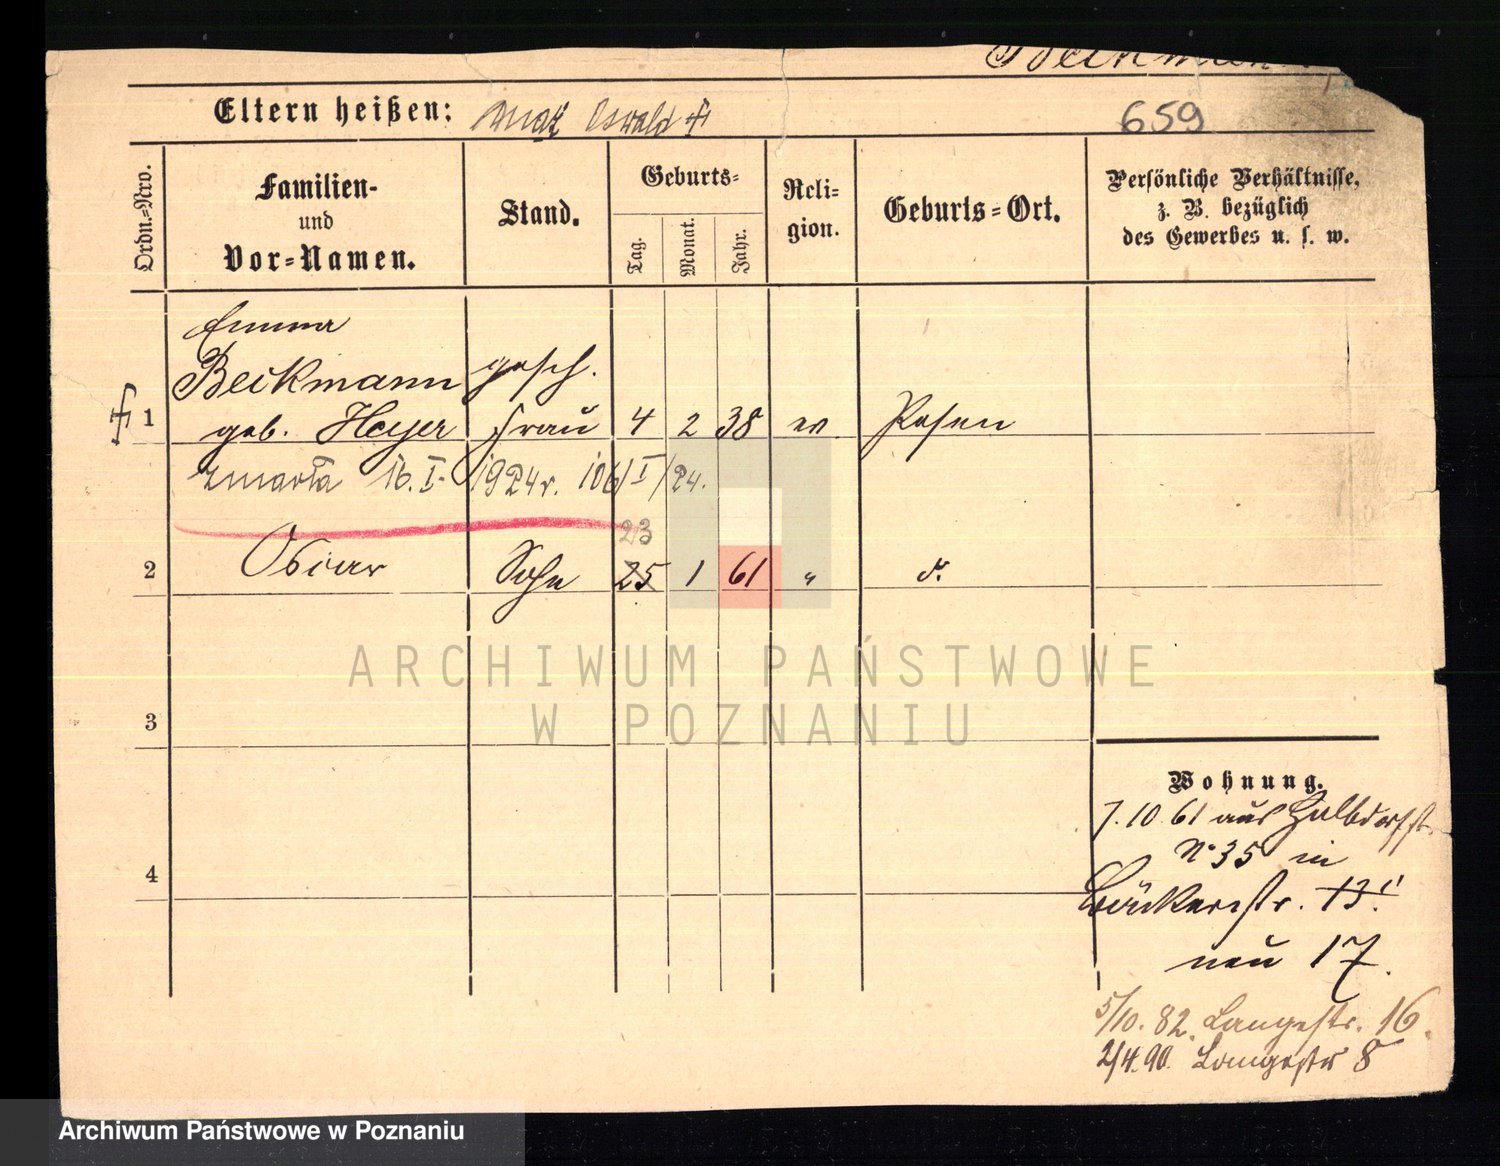 Beckmann
Eltern heißen: mąż Oswald † 659
Ordn.-Nro. Familien- und Vor-Namen. Stand. Geburts- Tag. Monat. Jahr. Reli- gion. Geburts-Ort. Persönliche Verhältnisse, z. B. bezüglich des Gewerbes u. s. w.
Emma
Beckmann gesch.
† 1 geb. Heyer Frau 4 2 38 ev. Posen
zmarła 16. I. 1924r. 106/I/24.
23
2 Oscar Sohn 25 1 61 " d.
ARCHIWUM PAŃSTWOWE
W POZNANIU
3
Wohnung.
7.10.61 aus Halbdorfst.
N° 35 in
4
Bäckerstr. 13.
neu 17.
5/10. 82. Langestr. 16.
2/4.90. Langestr 8
Archiwum Państwowe w Poznaniu